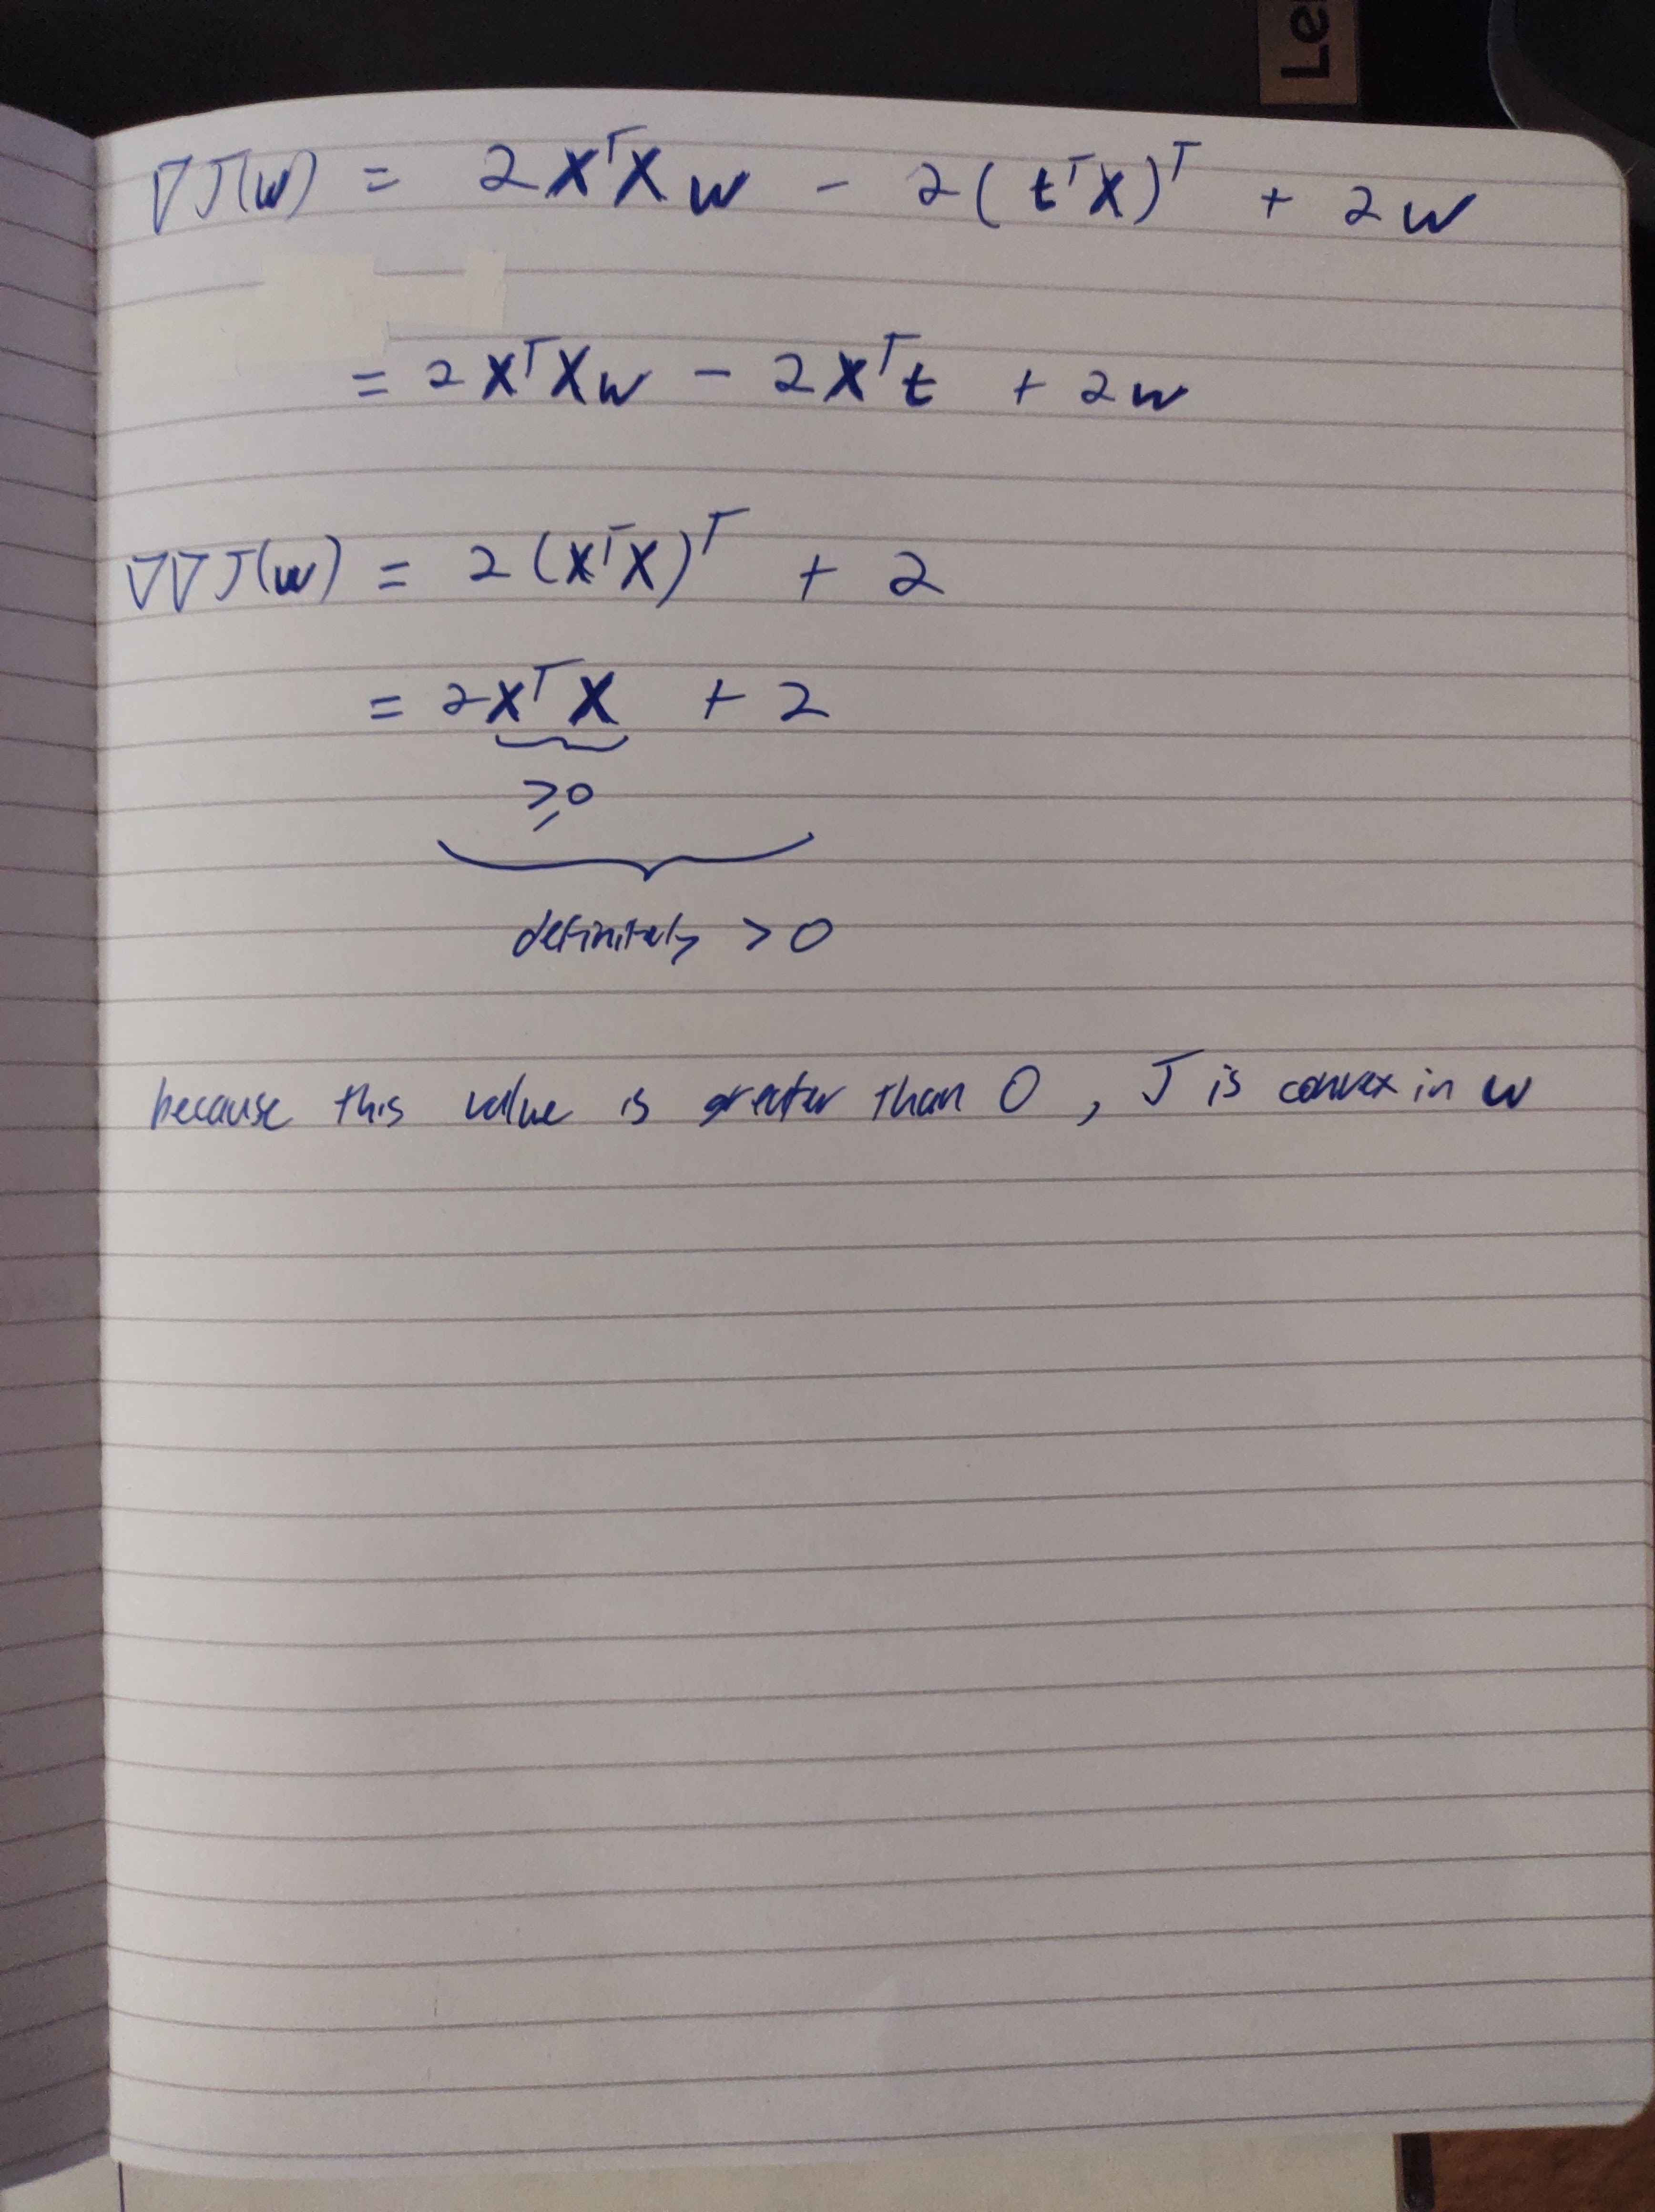 Le
∇J(w) = 2XᵀXw - 2(tᵀX)ᵀ + 2w
= 2XᵀXw - 2Xᵀt + 2w
∇∇J(w) = 2(XᵀX)ᵀ + 2
= 2XᵀX + 2
≥0
definitely > 0
because this value is greater than 0, J is convex in w